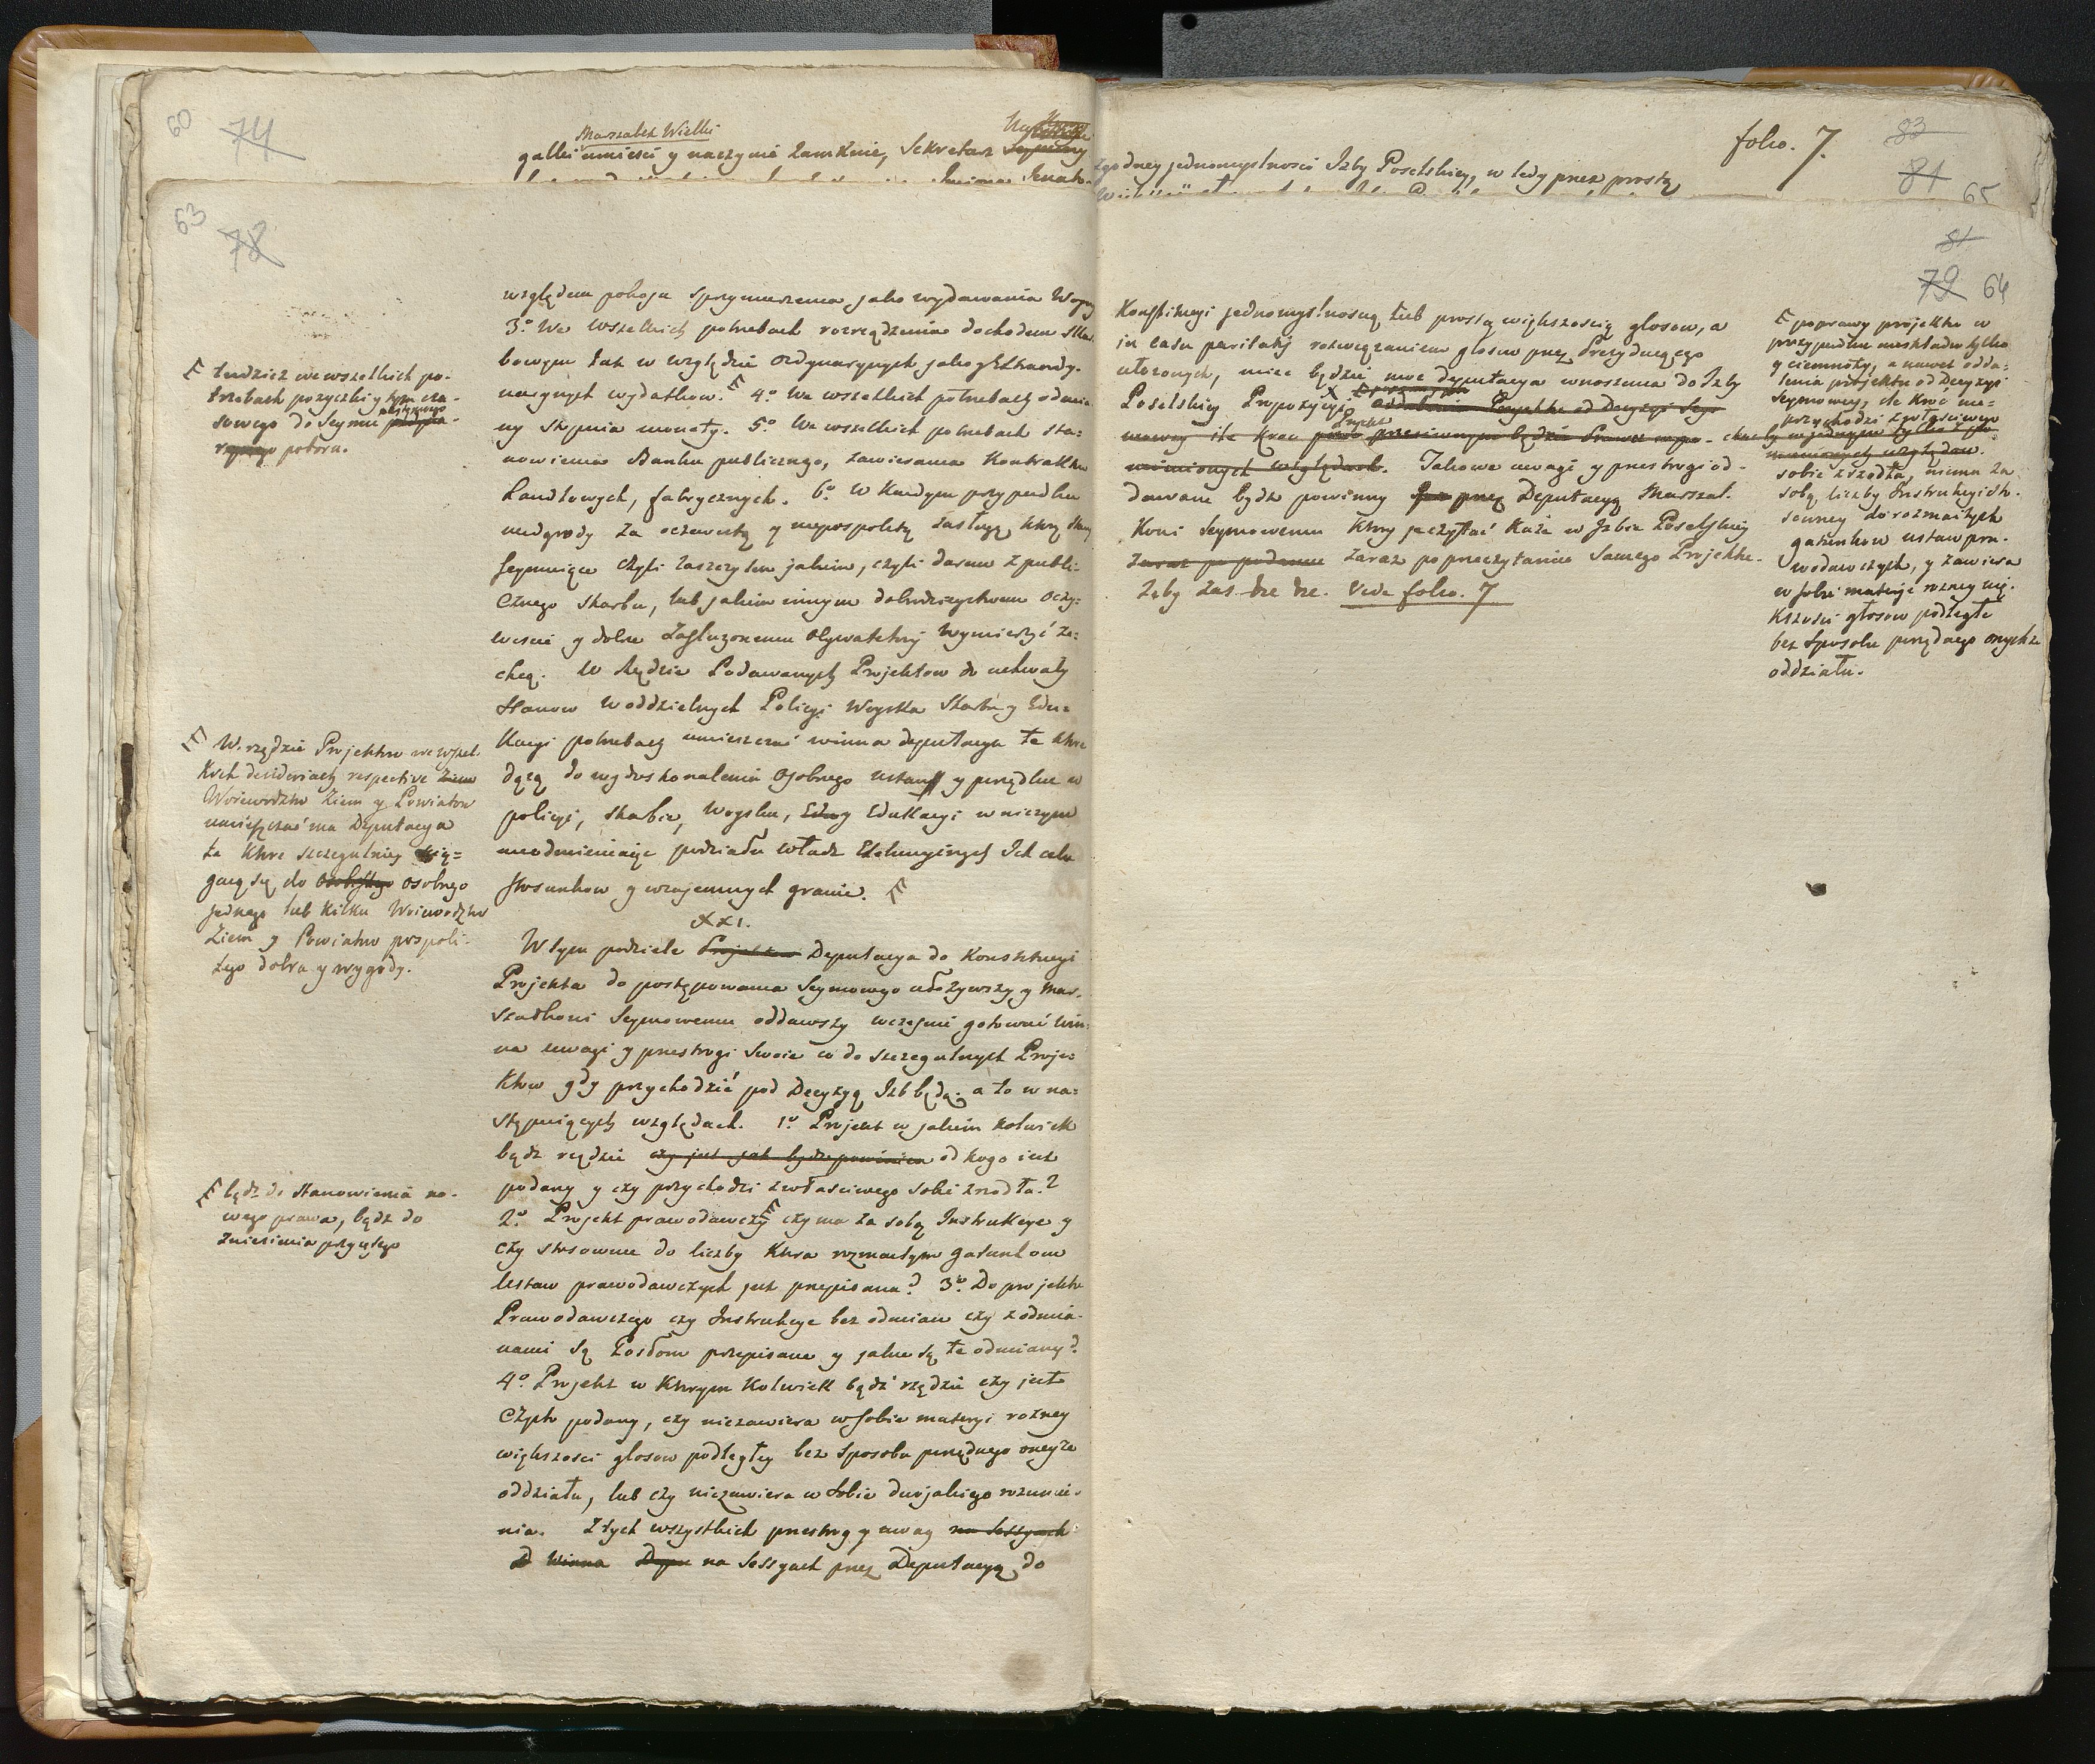 60
74
Marszałek Wielki
gałki umieści y naczynie zamknie, Sekretarz Seymowy
63
78
względem pokoju sprzymierzenia, jako wydawania Woyny
3º We wszelkich potrzebach rozrządzenia dochodem Skar-
bowym tak w względzie ordynaryjnych jako y Extraordy-
naryjnych wydatkow. 4º We wszelkich potrzebach odmia-
ny stopnia monety. 5º We wszelkich potrzebach sta-
nowienia Banku publicznego, zawierania Kontraktów
handlowych, fabrycznych. 6º W Każdym przypadku
nadgrody za oczewistą y niepospolitą zasługę, którą Stany
Seymuiące czyli zaszczytem jakim, czyli darem z publi-
cznego Skarbu, lub jakim innym dobrodzieystwem oczy-
wiscie y dobrze Zasłużonemu Obywatelowi wymierzyć ze-
chcą. W Rzędzie Podawanych Projektow do uchwały
Stanow w oddzielnych Policyi Woyska Skarbu y Edu-
kacyi potrzebach umieszczać winna deputacya te ktore
dążą do wydoskonalenia osobnego ustaw y porządku w
policyi, skarbie, Woysku, Eduy Edukacyi w niczym
nieodmieniaiąc podziału władz Exekucyinych Ich celu
stosunkow y wzajemnych granic.
XXI.
W tym podziele Projektow Deputacya do Konstytucyi
Projekta do postępowania Seymowego ułożywszy y Mar-
szałkowi Seymowemu oddawszy wcześnie gotować win-
na uwagi y przestrogi Swoie co do szczegulnych Proje-
któw gdy przychodzić pod Decyzyą Izb będą: a to w na-
stępuiących względach. 1º Projekt w jakim kolwiek
bądz rzędzie czy jest jak bydz powinien od kogo iest
podany y czy przychodzi z właściwego sobie zrzodła?
2º Projekt prawodawczy czy ma za sobą Instrukcye y
czy stosownie do liczby ktora rozmaitym gatunkom
Ustaw prawodawczych jest przepisana? 3º Do projektu
Prawodawczego czy Instrukcye bez odmian czy z odmia-
nami są Posłom przepisane y jakie są te odmiany?
4º Projekt w którym kolwiek bądź rzędzie czy jest
Czysto podany, czy niezawiera w sobie materyi rożney
większości głosow podległey bez sposobu porządnego oneyże
oddziału, lub czy niezawiera w sobie dwojakiego rozumie-
nia. Z tych wszystkich przestrog y uwag na Sessyach
D Winna Depu na Sessyach przez Deputacyą do
tudzież we wszelkich po-
trzebach pożyczki y tym cza-
sowego do Seymu
poboru.
W rzędzie Projektow we wszel-
kich desideriach respective Ziem
Woiewodztw Ziem y Powiatow
umieszczać ma Deputacya
te ktore szczegulniey ścią-
gaią się do osobistego osobnego
jednego lub kilku Woiewodztw
Ziem y Powiatow pospoli-
tego dobra y wygody.
bądz do stanowienia no-
wego prawa, bądz do
zniesienia przyiętego
folio. 7.
83
81
65
zgodney jednomyslnosci Izby Poselskiey, w tedy przez prostą
81
79 64
Konstytucyi jednomyslnością lub prostą większością głosow, a
in casu paritatis rozwiązaniem głosu przez Prezyduiącego
ułożonych, mieć będzie moc deputacya wnoszenia do Izby
Poselskiey Propozycyi, oddalenia Projektu od Decyzyi Sey-
mowey ile kroc przeciwnym będzie Prawu w po-
mienionych względach. Takowe uwagi y przestrogi od-
dawane bydz powinny Jzb przez Deputacyą Marszał-
kowi Seymowemu który je czytać każe w Izbie Poselskiey
zaraz po podanu zaraz po przeczytaniu Samego Projektu.
Żeby zas &c &c. Vide folio. 7
poprawy projektu w
przypadku nieskładu tylko
y ciemnoty, a nawet odda-
lenia projektu od Decyzyi
Seymowey, ile kroc nie-
przychodzi z właściwego
choc by w jednym tylko z po-
mienionych względow.
sobie zrzodła, niema za
sobą liczby Instrukcyi sto-
sowney do rozmaitych
gatunkow ustaw pra-
wodawczych, y zawiera
w sobie materye rożney wię-
kszości głosow podległe
bez sposobu porządnego onychże
oddziału.